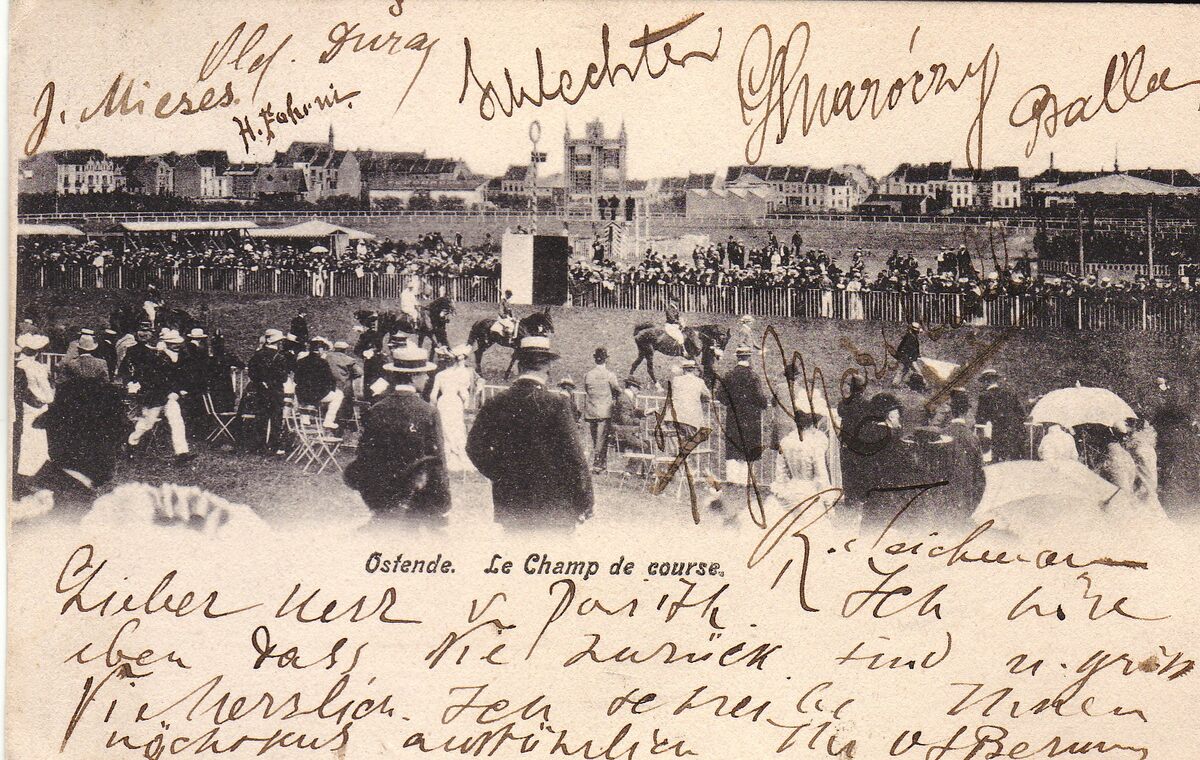 J. Mieses.
Old. Duras
H. Fahrni.
Schlechter
G Maróczy
Balla
R. Teichmann
Ostende. Le Champ de course.
Lieber Herr v Ich höre
eben dass Sie zurück sind u. grüße
Sie herzlich. Ich schreibe Ihnen
nächstens ausführlich Ihr